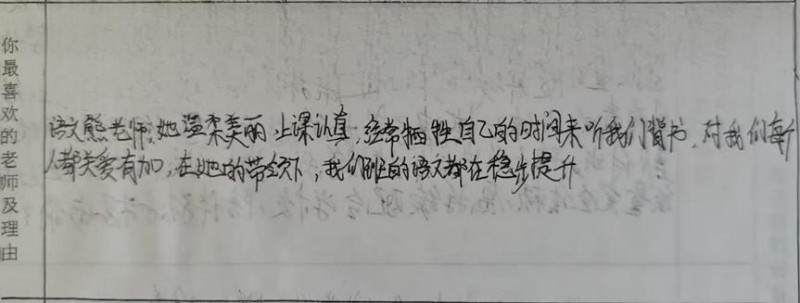 你最喜欢的老师及理由
语文熊老师，她温柔美丽，上课认真，经常牺牲自己的时间来听我们背书，对我们每个
人都关爱有加，在她的带领下，我们班的语文都在稳步提升